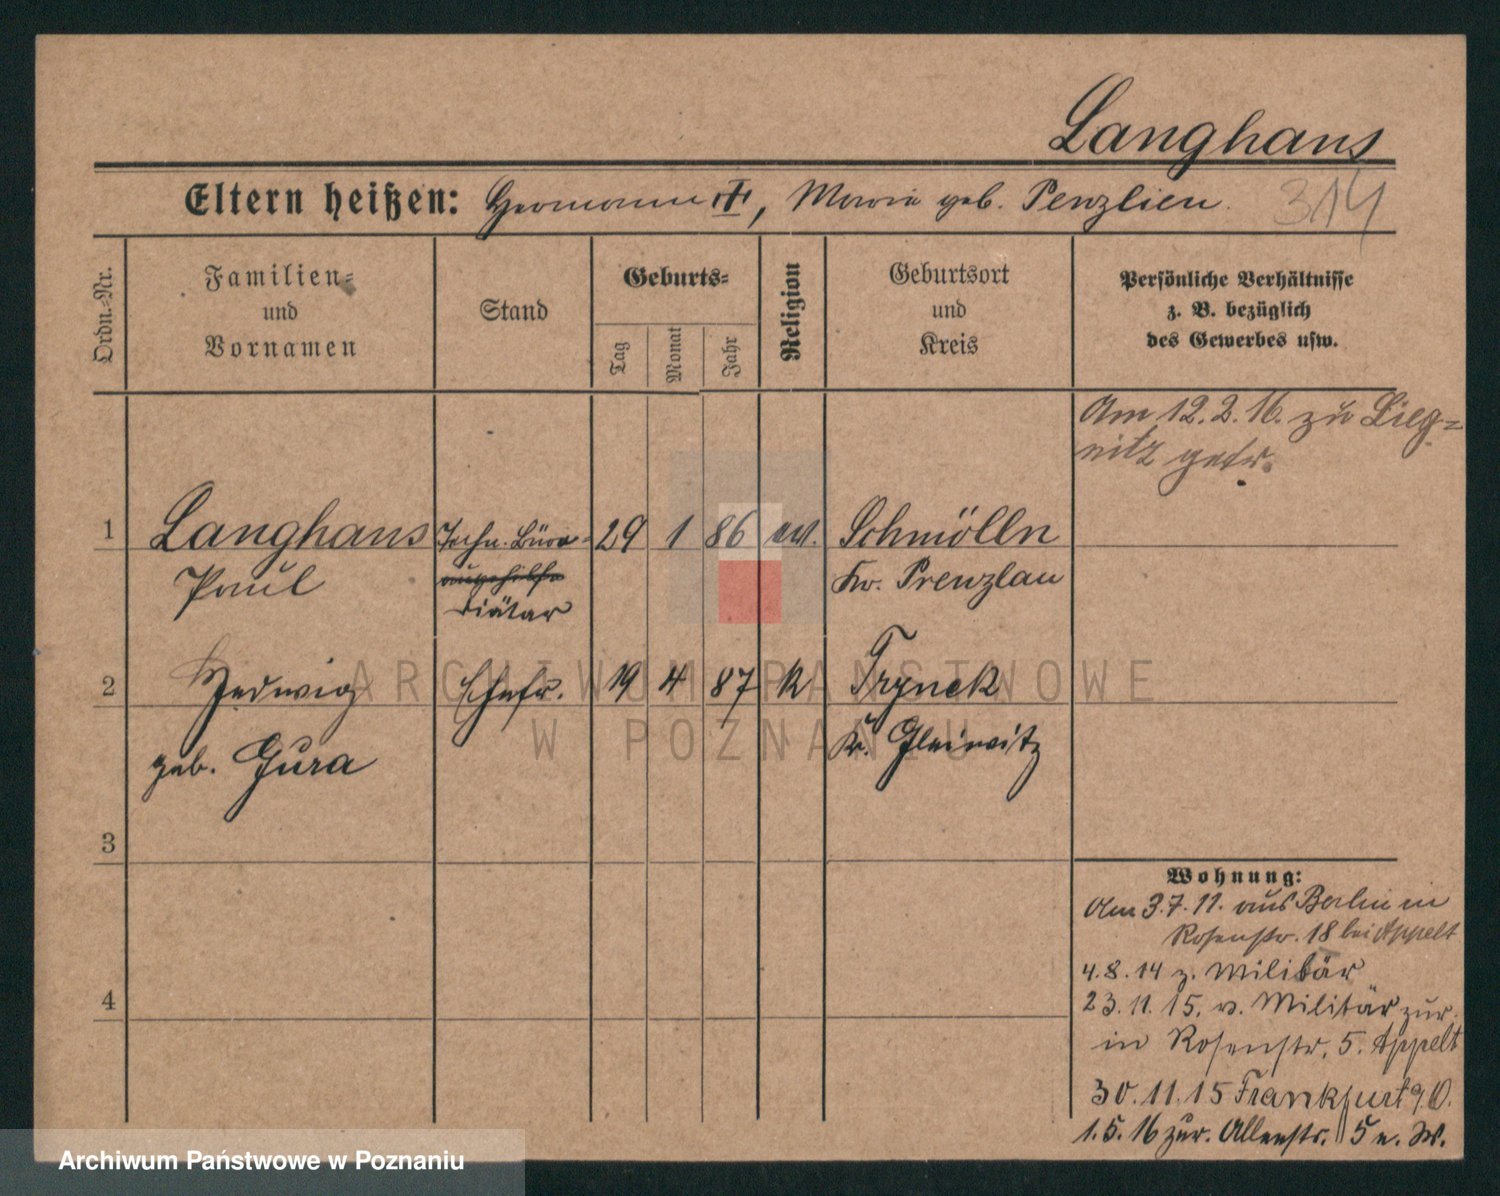 Langhans
Eltern heißen: Hermann ✝, Marie geb. Penzlien.
314
Ordn.-Nr.
Familien-
und
Vornamen
Stand
Geburts-
Tag
Monat
Jahr
Religion
Geburtsort
und
Kreis
Persönliche Verhältnisse
z. B. bezüglich
des Gewerbes usw.
Am 12.2.16. zu Lieg-
nitz getr.
1 Langhans Techn. Büro- 29 1 86 ev. Schmölln
Paul Kr. Prenzlau
Diätar
2 Hedwig Ehefr. 19 4 87 k Trynek
geb. Gura Kr. Gleiwitz
3
4
Wohnung:
Am 3.7.11. aus Berlin in
Rosenstr. 18 bei Appelt
4.8.14 z. Militär
23.11.15. v. Militär zur.
in Rosenstr. 5. Appelt
30.11.15 Frankfurt a. O.
1.5.16 zur. Allenstr. 5 e. W.
ARCHIWUM PAŃSTWOWE
W POZNANIU
Archiwum Państwowe w Poznaniu